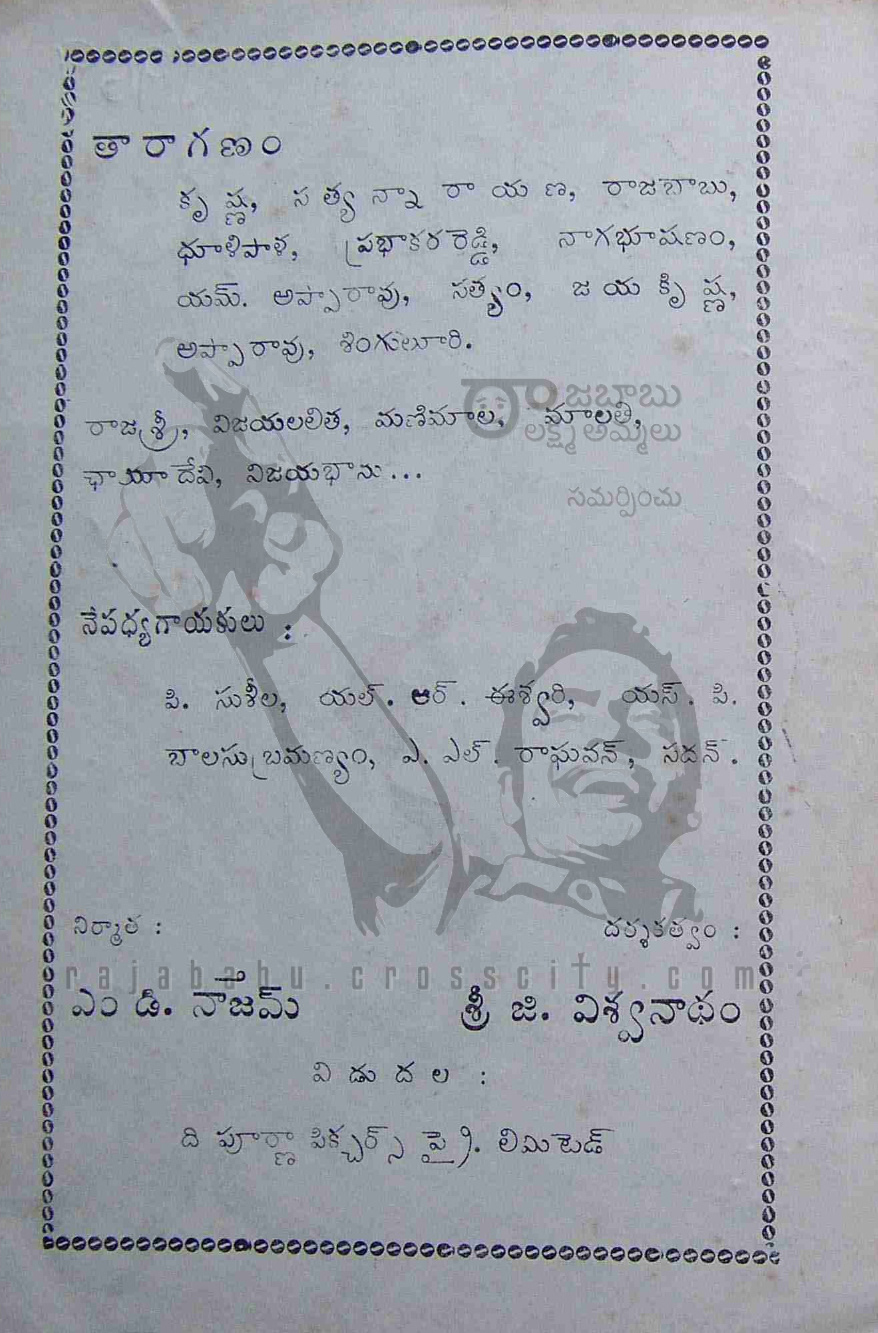 తారాగణం
కృష్ణ, సత్యన్నారాయణ, రాజబాబు,
ధూళిపాళ, ప్రభాకరరెడ్డి, నాగభూషణం,
యమ్. అప్పారావు, సత్యం, జయ కృిష్ణ,
అప్పారావు, శింగులూరి.
రాజబాబు
రాజశ్రీ, విజయలలిత, మణిమాల, మాలతి,
లక్ష్మీ అమ్మలు
ఛాయాదేవి, విజయభాను...
సమర్పించు
నేపధ్యగాయకులు :
పి. సుశీల, యల్. ఆర్. ఈశ్వరి, యస్. పి.
బాలసుబ్రమణ్యం, ఎ. ఎల్. రాఘవన్, సదన్.
నిర్మాత : దర్శకత్వం :
rajababu.crosscity.com
ఎం డి. నాజమ్ శ్రీ జి. విశ్వనాథం
విడుదల :
ది పూర్ణా పిక్చర్స్ ప్రై. లిమిటెడ్